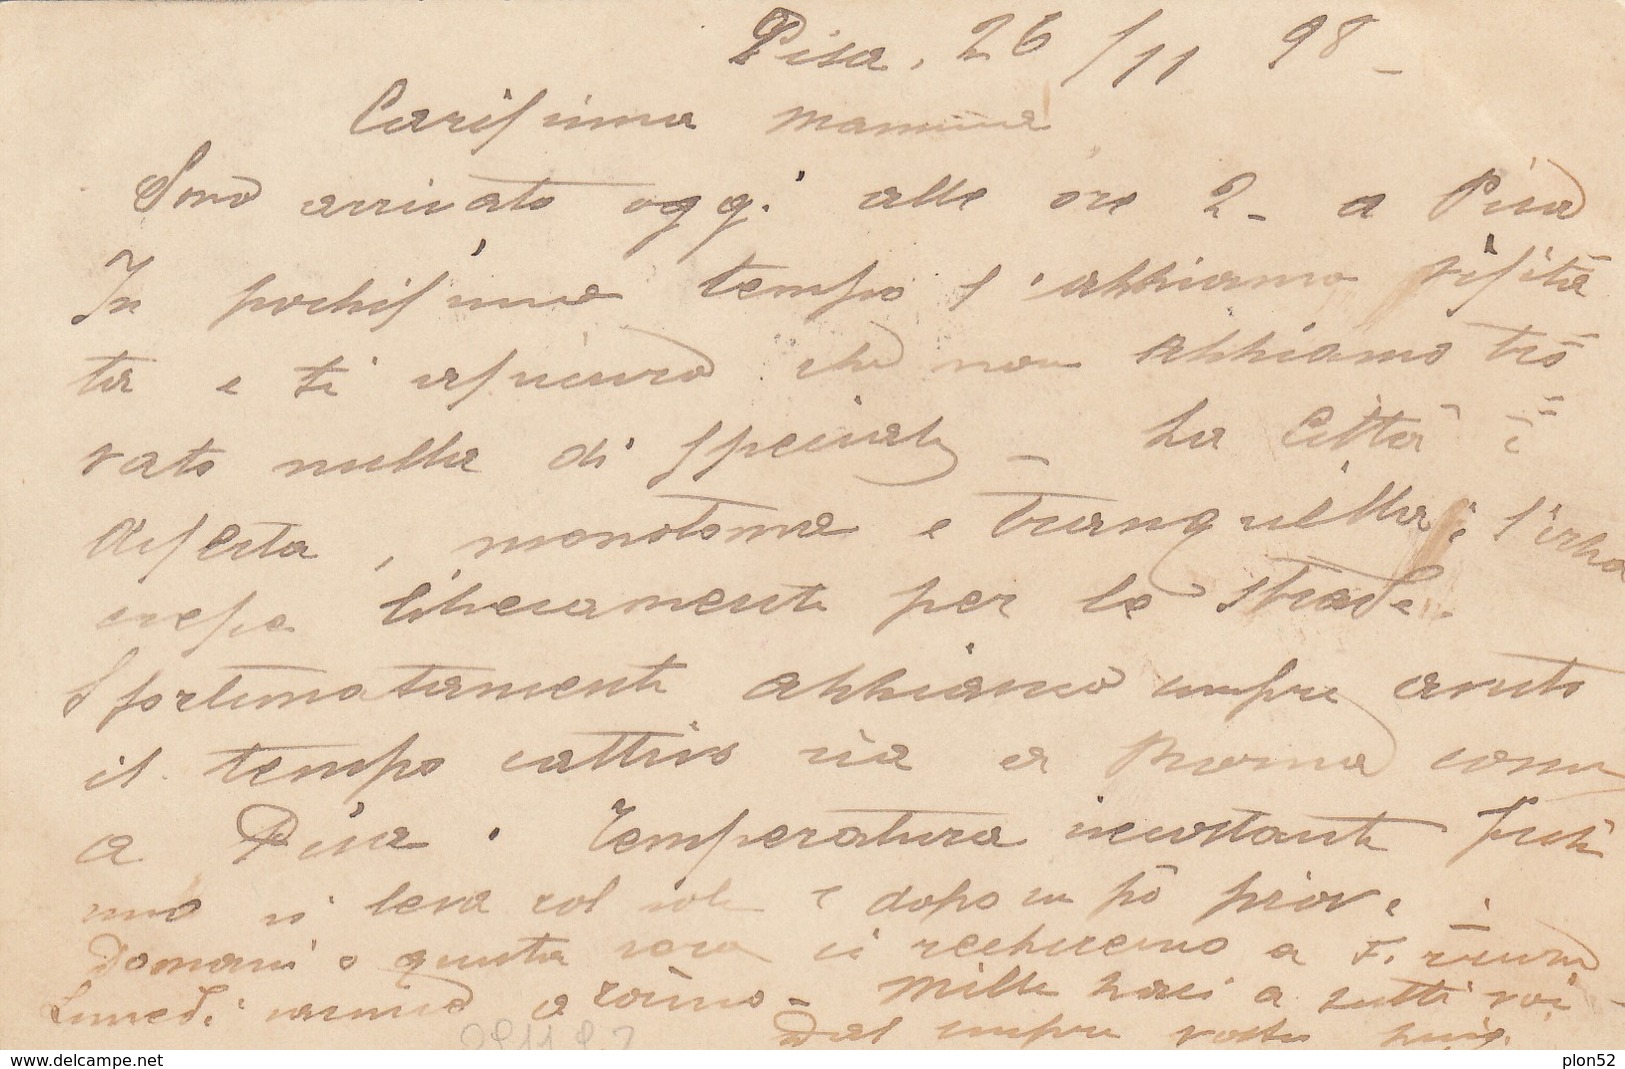 Pisa, 26/11 98 -
Carissima mamma
Sono arrivato oggi alle ore 2 - a Pisa
In pochissimo tempo l'abbiamo visita
ta e ti assicuro che non abbiamo tro
vato nulla di speciale - La Città è
deserta, monotona e tranquilla; l'erba
cresce liberamente per le strade.
Sfortunatamente abbiamo sempre avuto
il tempo cattivo sia a Roma come
a Pisa. Temperatura incostante
si leva col sole e dopo un pò piove.
Domani o questa sera ci recheremo a Firenze
Lunedì saremo a Torino - Mille baci a tutti voi -
Dal sempre vostro
delcampe.net
plon52